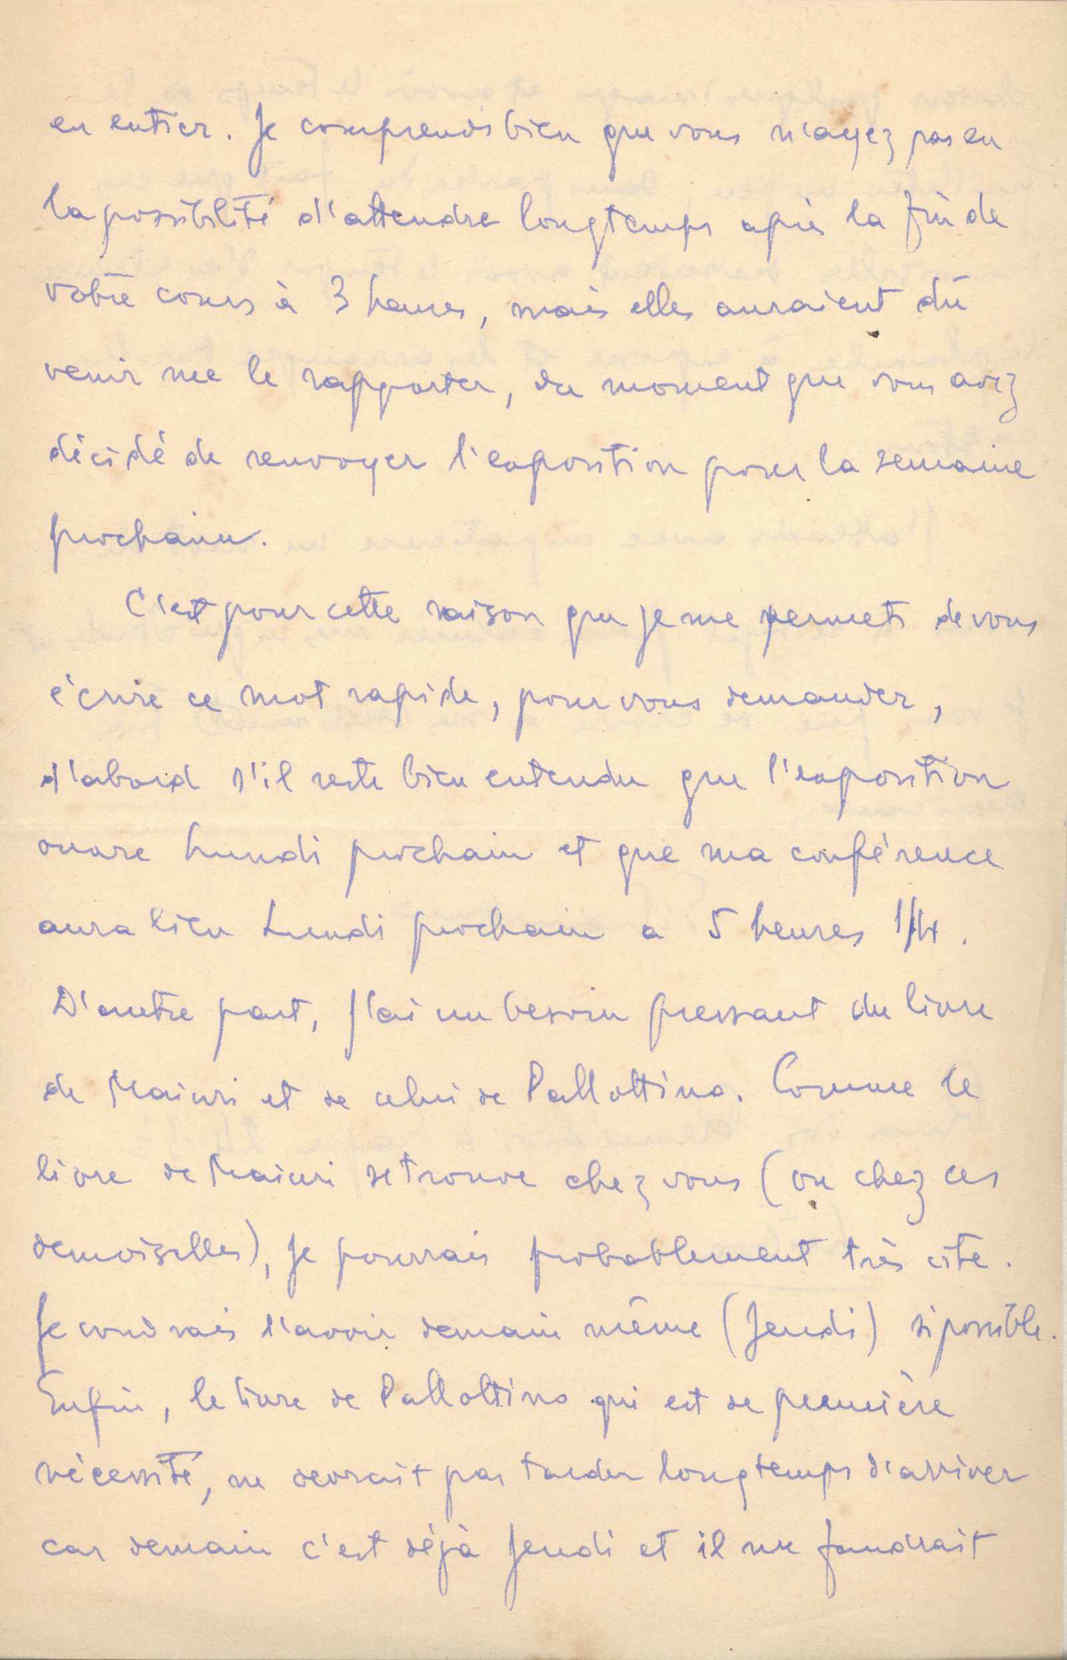 en entier. Je comprends bien que vous n'ayez pas eu
la possibilité d'attendre longtemps après la fin de
votre cours à 3 heures, mais elles auraient dû
venir me le rapporter, du moment que vous avez
décidé de renvoyer l'exposition pour la semaine
prochaine.
C'est pour cette raison que je me permets de vous
écrire ce mot rapide, pour vous demander,
d'abord s'il reste bien entendu que l'exposition
ouvre Lundi prochain et que ma conférence
aura lieu Lundi prochain a 5 heures 1/4.
D'autre part, j'ai un besoin pressant du livre
de Maiuri et de celui de Pallottino. Comme le
livre de Maiuri se trouve chez vous (ou chez ces
demoiselles), je pourrais probablement très vite.
Je voudrais l'avoir demain même (Jeudi) si possible.
Enfin, le livre de Pallottino qui est de première
nécessité, ne devrait pas tarder longtemps d'arriver
car demain c'est déjà Jeudi et il me faudrait